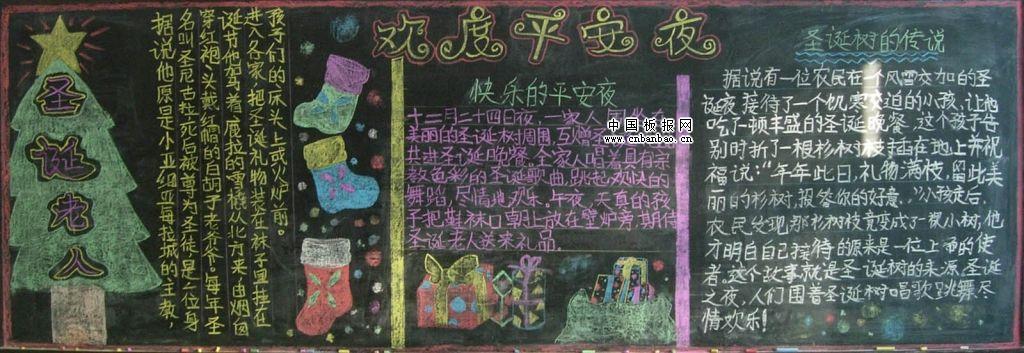 欢度平安夜
圣诞老人
据说他原是小亚细亚每拉城的主教,
名叫圣尼古拉,死后被尊为圣徒,是一位身
穿红袍、头戴红帽的白胡子老爷爷。每年圣
诞节他驾着鹿拉的雪橇从北方来,由烟囱
进入各家,把圣诞礼物装在袜子里挂在
孩子们的床头上或火炉前。
快乐的平安夜
十二月二十四日夜,一家人
美丽的圣诞树周围,互赠
共进圣诞晚餐。全家人唱着具有宗
教色彩的圣诞歌曲,跳起欢快的
舞蹈,尽情地欢乐。午夜,天真的孩
子把鞋袜口朝上放在壁炉旁,期待
圣诞老人送来礼品。
中国板报网
www.cnbanbao.cn
圣诞树的传说
据说有一位农民在一个风雪交加的圣
诞夜接待了一个饥寒交迫的小孩,让他
吃了顿丰盛的圣诞晚餐,这个孩子告
别时折了一根杉树枝插在地上并祝
福说:“年年此日,礼物满枝,留此美
丽的杉树,报答你的好意。”小孩走后,
农民发现那杉树枝竟变成了一棵小树,他
才明白自己接待的原来是一位上帝的使
者。这个故事就是圣诞树的来源。圣诞
之夜,人们围着圣诞树唱歌跳舞尽
情欢乐!